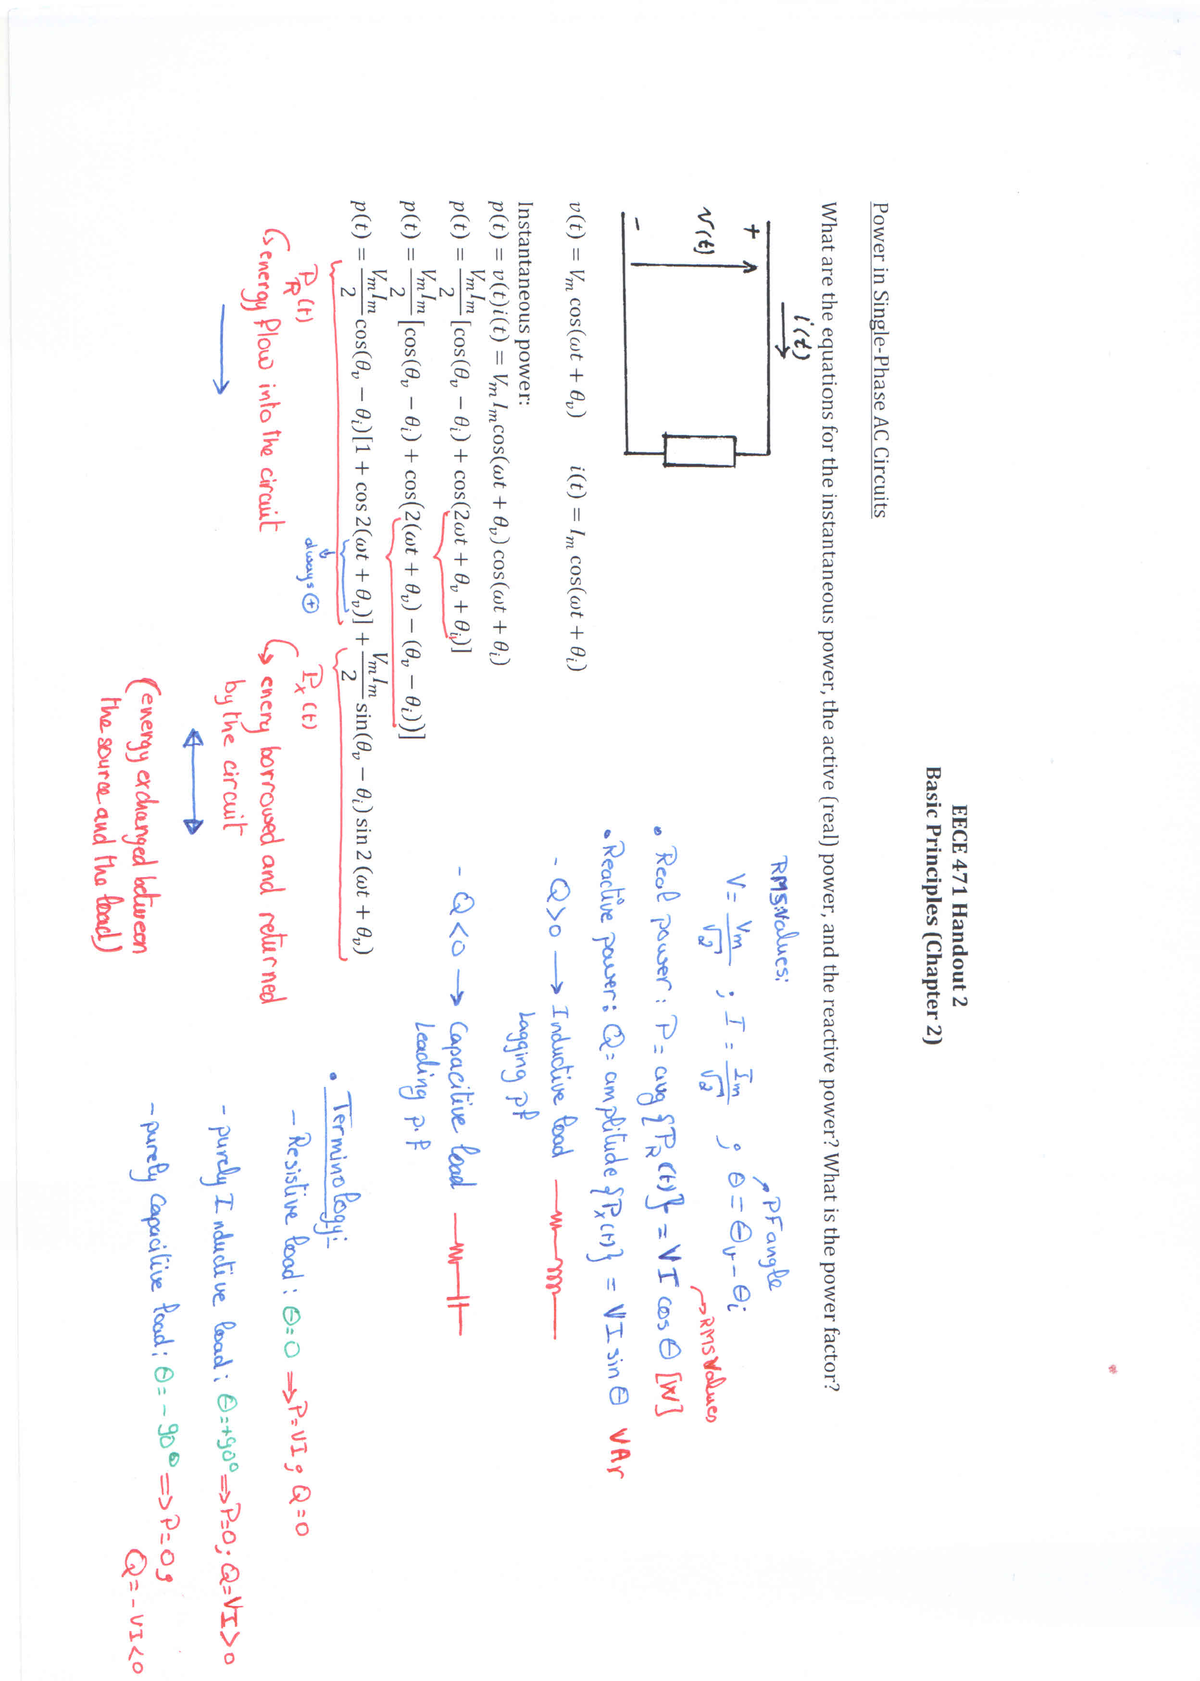 EECE 471 Handout 2
Basic Principles (Chapter 2)
Power in Single-Phase AC Circuits
What are the equations for the instantaneous power, the active (real) power, and the reactive power? What is the power factor?
i(t)
+
v(t)
-
v(t) = Vm cos(ωt + θv)    i(t) = Im cos(ωt + θi)
Instantaneous power:
p(t) = v(t)i(t) = Vm Im cos(ωt + θv) cos(ωt + θi)
p(t) = VmIm/2 [cos(θv − θi) + cos(2ωt + θv + θi)]
p(t) = VmIm/2 [cos(θv − θi) + cos(2(ωt + θv) − (θv − θi))]
p(t) = VmIm/2 cos(θv − θi)[1 + cos 2(ωt + θv)] + VmIm/2 sin(θv − θi) sin 2 (ωt + θv)
always +
PR(t)
↳ energy flow into the circuit
Px(t)
↳ enery borrowed and returned
by the circuit
(energy exchanged between
the source and the load)
RMS Values:
V = Vm/√2 ; I = Im/√2 ; θ = θv - θi
PF angle
→ RMS Values
• Real power : P = avg {PR(t)} = VI cos θ [W]
• Reactive power: Q = amplitude {Px(t)} = VI sin θ VAr
- Q>0 → Inductive load
Lagging pf
- Q<0 → Capacitive load
Leading p.f
• Terminology:
- Resistive load : θ=0 ⇒ P=VI ; Q=0
- purely Inductive load : θ=+90° ⇒ P=0 ; Q=VI>0
- purely Capacitive load : θ = -90° ⇒ P=0 ;
Q = -VI<0